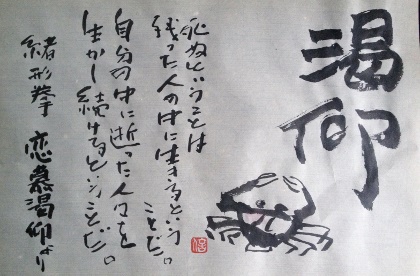 渇仰
死ぬということは
残った人の中に生きるという
ことだ。
自分の中に逝った人々を
生かし続けるということだ。
緒形拳 恋慕渇仰より
信